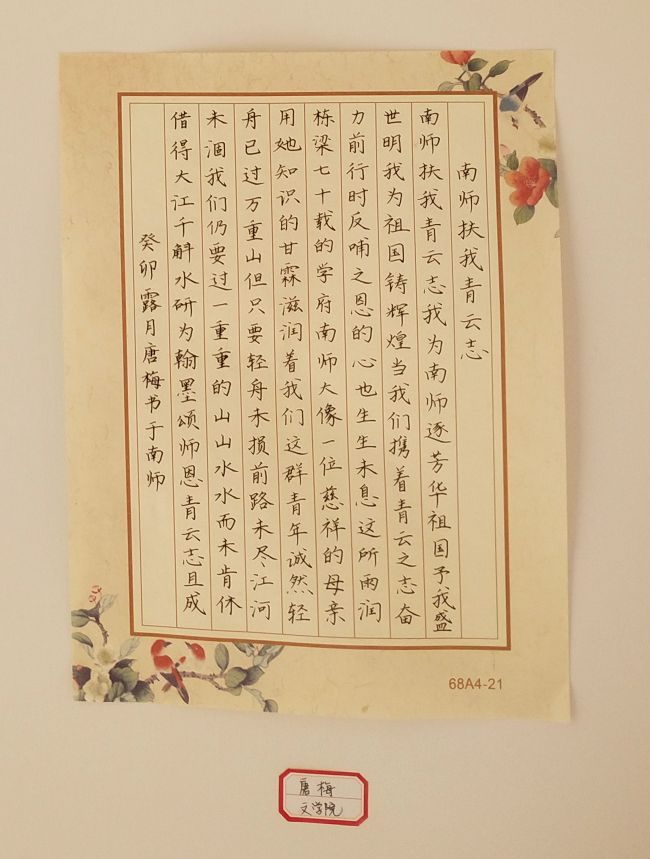 南师扶我青云志
南师扶我青云志我为南师逐芳华祖国予我盛
世明我为祖国铸辉煌当我们携着青云之志奋
力前行时反哺之恩的心也生生未息这所雨润
栋梁七十载的学府南师大像一位慈祥的母亲
用她知识的甘霖滋润着我们这群青年诚然轻
舟已过万重山但只要轻舟未损前路未尽江河
未涸我们仍要过一重重的山山水水而未肯休
借得大江千斛水研为翰墨颂师恩青云志且成
癸卯露月唐梅书于南师
68A4-21
唐梅
文学院